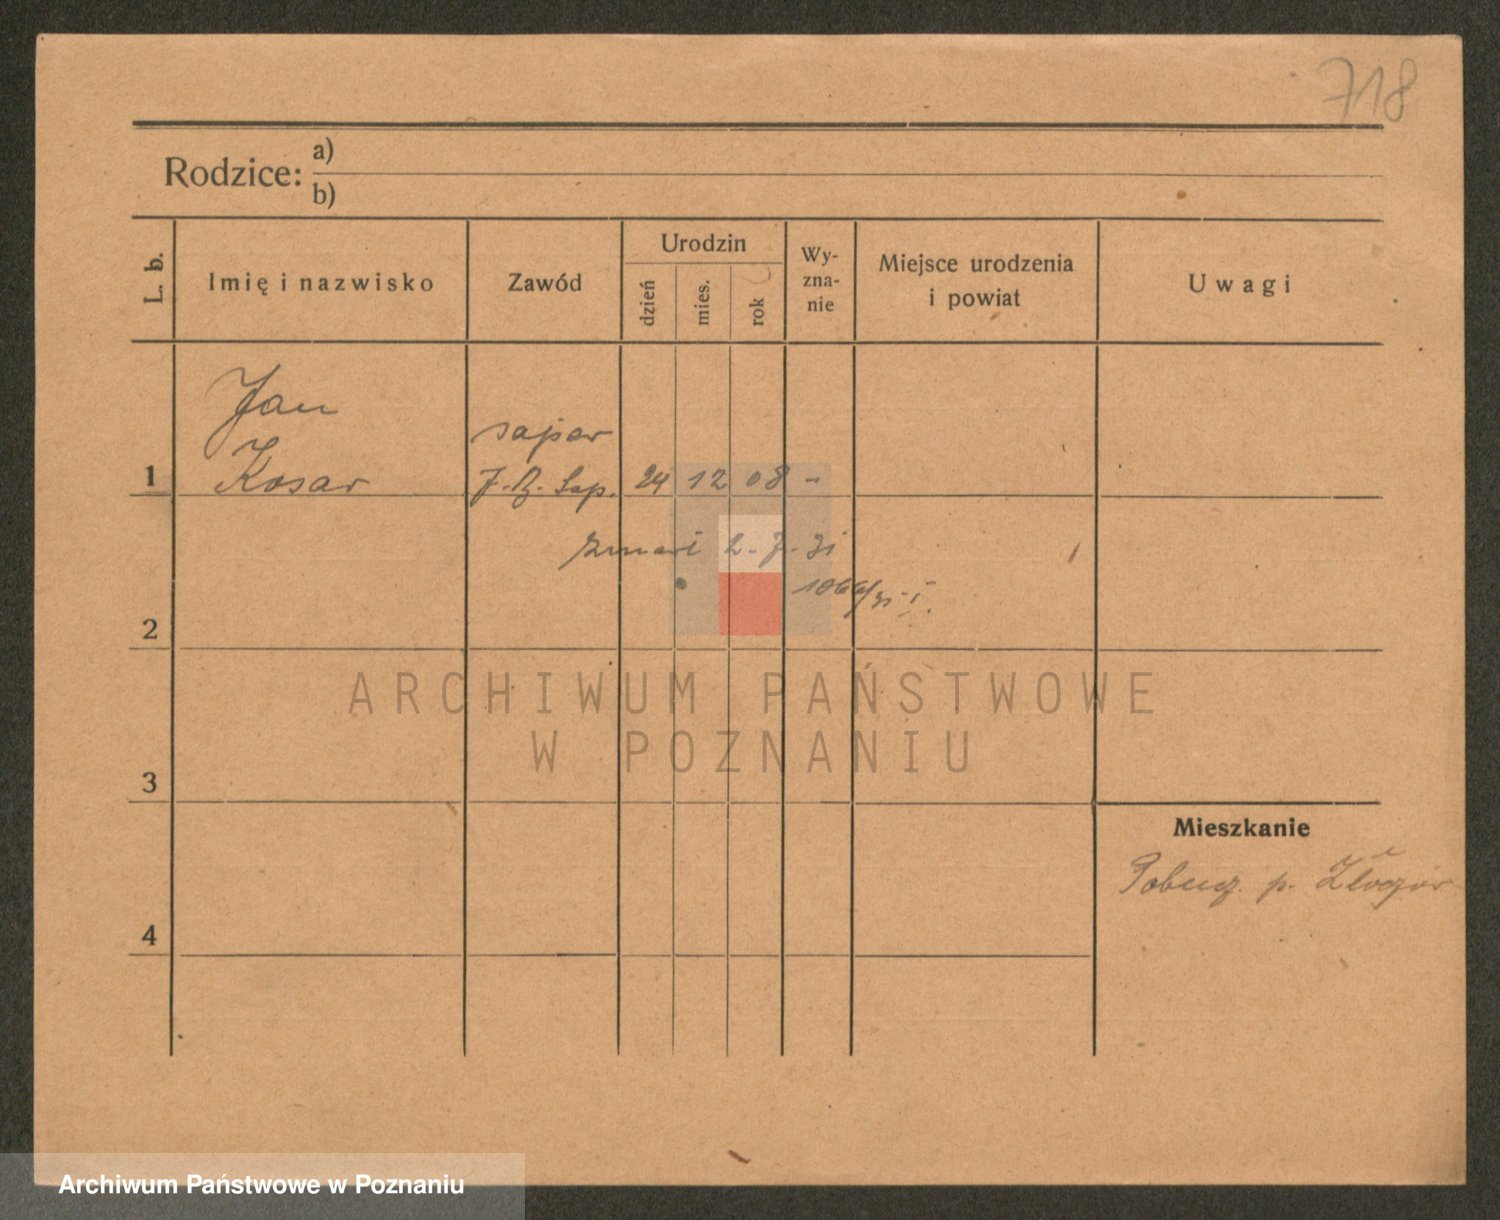 718
Rodzice: a)
b)
L. b.
Imię i nazwisko
Zawód
Urodzin
dzień
mies.
rok
Wy-
zna-
nie
Miejsce urodzenia
i powiat
Uwagi
Jan
Kosar
saper
1
7. B. Sap. 24 12 08 -
zmarł 2. 7. 31
1066/31-I.
2
3
4
Mieszkanie
p. Złoczów
ARCHIWUM PAŃSTWOWE
W POZNANIU
Archiwum Państwowe w Poznaniu